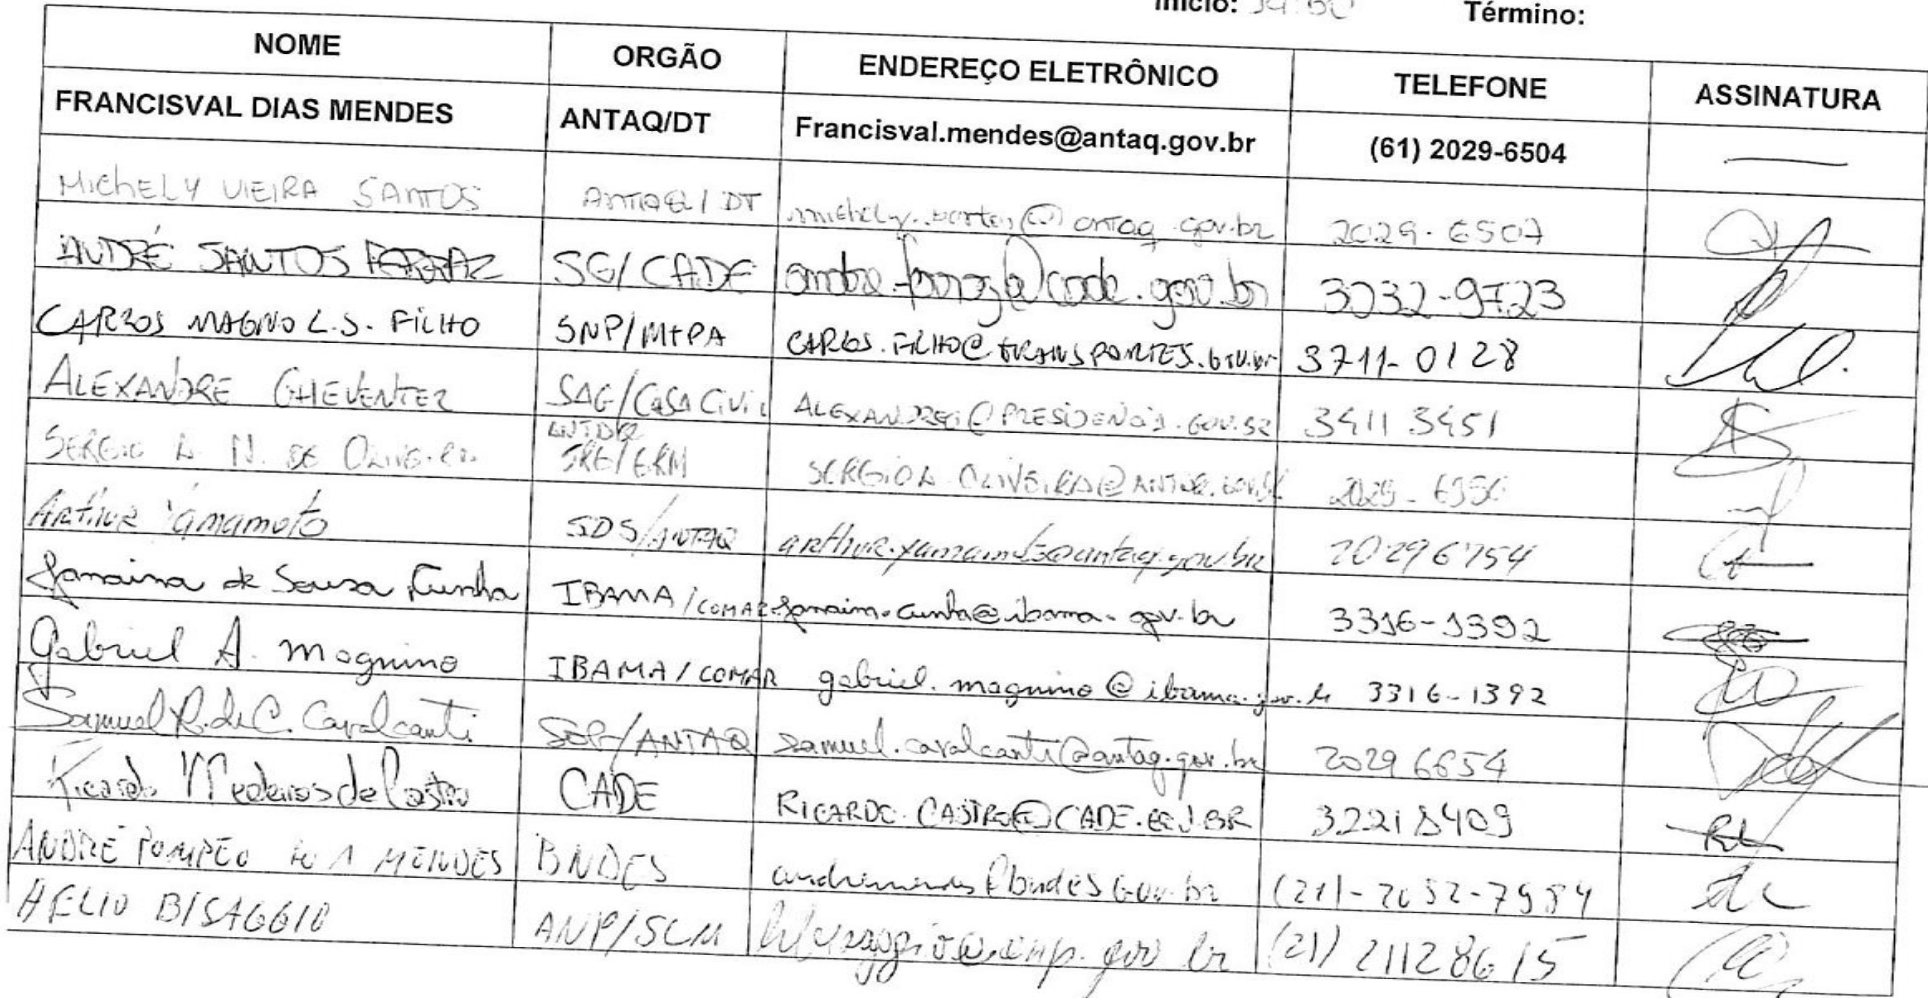 Início: 14:30 Término:
NOME ORGÃO ENDEREÇO ELETRÔNICO TELEFONE ASSINATURA
FRANCISVAL DIAS MENDES ANTAQ/DT Francisval.mendes@antaq.gov.br (61) 2029-6504
MICHELY VIEIRA SANTOS ANTAQ/DT 2029-6507
ANDRÉ SANTOS FERRAZ SG/CADE andre.ferraz@cade.gov.br 3232-9723
CARLOS MAGNO L.S. FILHO SNP/MTPA CARLOS.FILHO@TRANSPORTES.GOV.BR 3711-0128
ALEXANDRE GHEVENTER SAG/CASA CIVIL ALEXANDREG@PRESIDENCIA.GOV.BR 3411 3451
SERGIO L. N. DE OLIVEIRA ANTAQ
SERGIO.OLIVEIRA@ANTAQ.GOV.BR
ARTHUR YAMAMOTO SDS/ANTAQ arthur.yamamoto@antaq.gov.br 20296754
Janaina de Sousa Cunha IBAMA/COMAR janaina.cunha@ibama.gov.br 3316-1392
Gabriel A. Magnino IBAMA/COMAR gabriel.magnino@ibama.gov.br 3316-1392
Samuel R. de C. Cavalcanti /ANTAQ samuel.cavalcanti@antaq.gov.br 2029 6654
Ricardo Medeiros de Castro CADE RICARDO.CASTRO@CADE.GOV.BR 32218409
ANDRÉ POMPEO MENDES BNDES
HELIO BISAGGIO ANP/SCM (21) 21128615